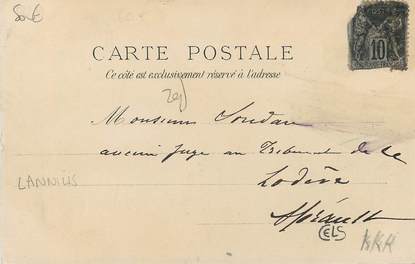 CARTE POSTALE
Ce côté est exclusivement réservé à l'adresse
10
Monsieur Soudan
ancien Juge au Tribunal de
Lodève
Hérault
LANNILIS
CELS